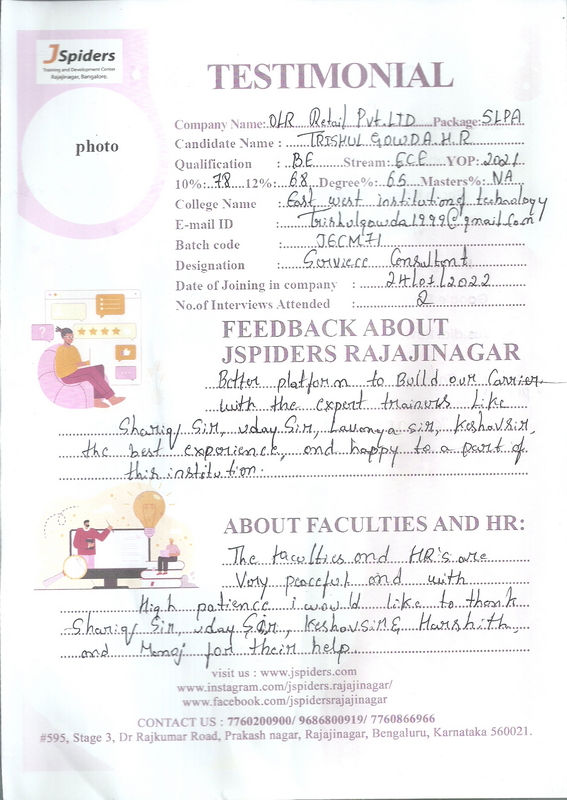 JSpiders
Training and Development Center
Rajajinagar, Bangalore.
TESTIMONIAL
photo
Company Name: OLR Retail Pvt.LTD Package: 5LPA
Candidate Name : TRISHUL GOWDA.H.R
Qualification : BE Stream: ECE YOP: 2021
10%: 78 12%: 68 Degree%: 65 Masters%: NA
College Name : East west institution of technology
E-mail ID : Trishulgowda1999@gmail.com
Batch code : JECM71
Designation : Serviece Consultant
Date of Joining in company : 24/01/2022
No.of Interviews Attended : 2
FEEDBACK ABOUT
JSPIDERS RAJAJINAGAR
Better platform to Build our Carrier
with the expert trainers Like
Shariq Sir, uday Sir, Lavanya sir, Keshav sir,
the best experience, and happy to a part of
this institution.
ABOUT FACULTIES AND HR:
The faculties and HR's are
Very peaceful and with
High patience i would like to thank
Shariq Sir, uday Sir, Keshav sir & Harshith,
and Manoj for their help.
visit us : www.jspiders.com
www.instagram.com/jspiders.rajajinagar/
www.facebook.com/jspidersrajajinagar
CONTACT US : 7760200900/ 9686800919/ 7760866966
#595, Stage 3, Dr Rajkumar Road, Prakash nagar, Rajajinagar, Bengaluru, Karnataka 560021.